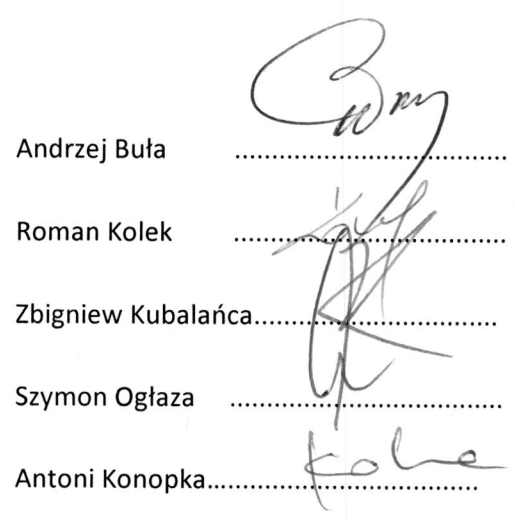 Andrzej Buła ........................................
Roman Kolek ........................................
Zbigniew Kubalańca....................................
Szymon Ogłaza ........................................
Antoni Konopka........................................